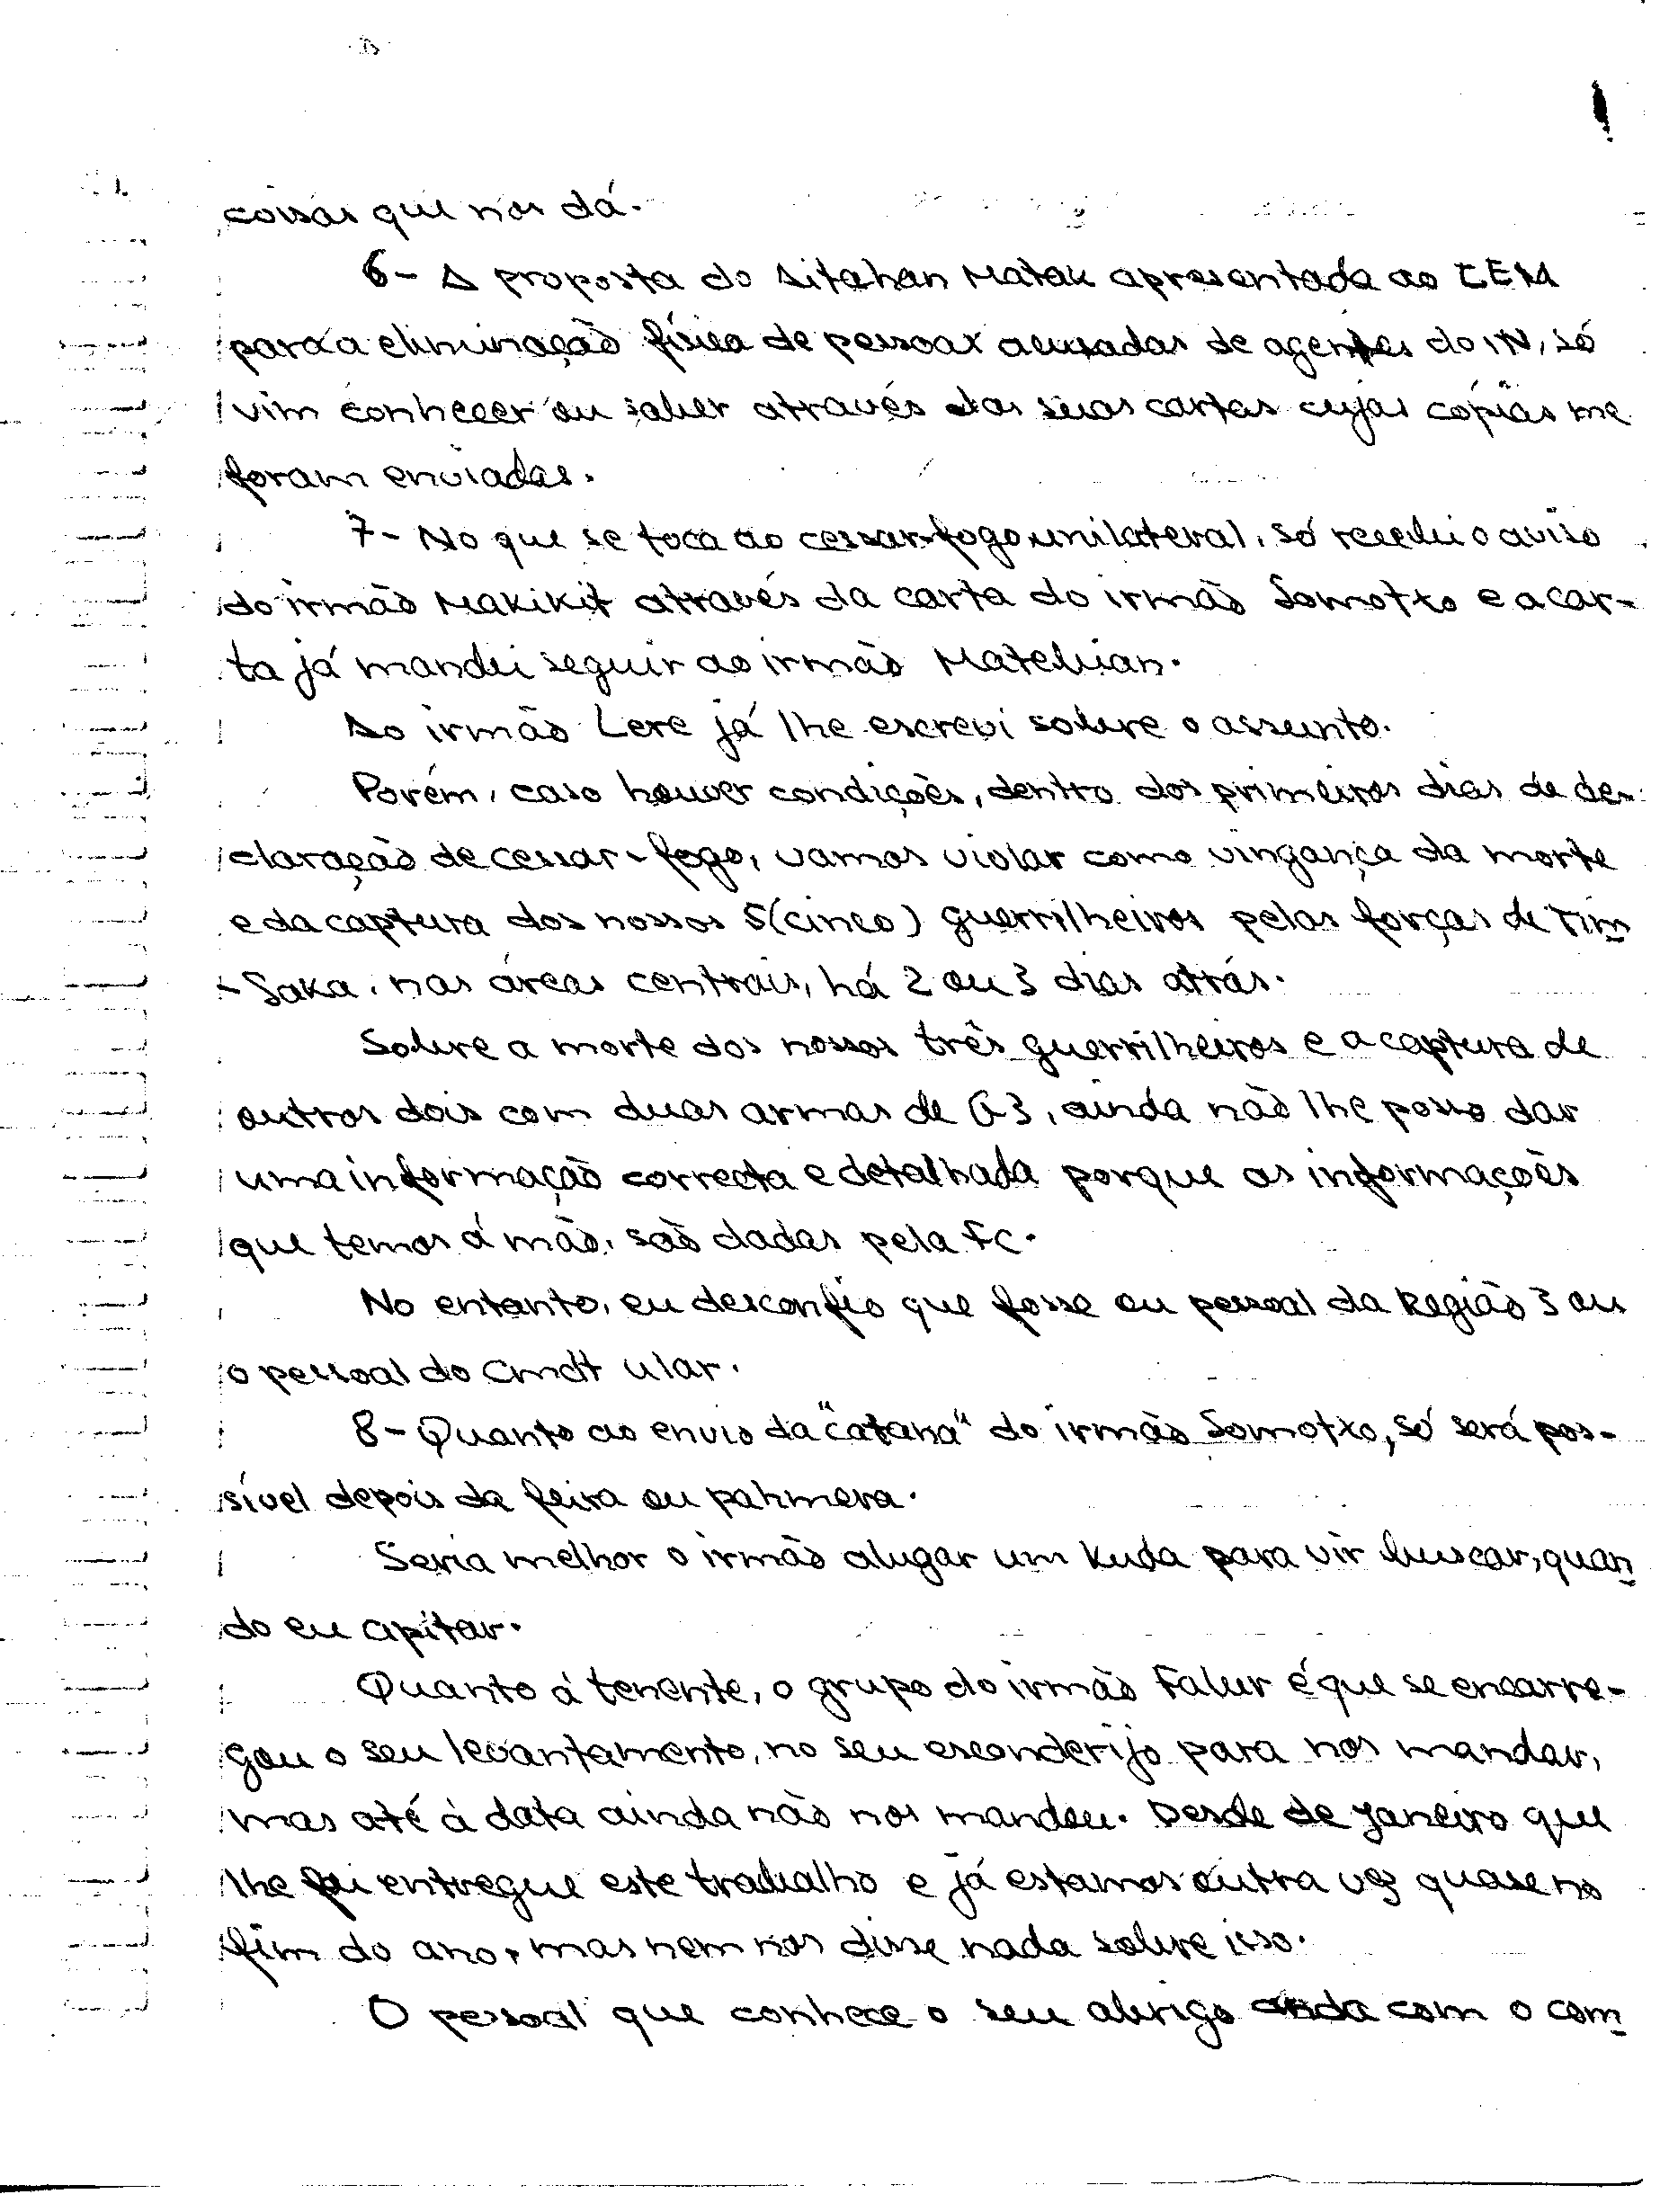 coisas que nos dá.
6- A proposta do Aitahan Matak apresentada ao CEM
para a eliminação física de pessoas acusadas de agentes do IN, só
vim conhecer ou saber através das suas cartas cujas cópias me
foram enviadas.
7- No que se toca ao cessar-fogo unilateral, só recebi o aviso
do irmão Makikit através da carta do irmão Somotxo e a car-
ta já mandei seguir ao irmão Matebian.
Ao irmão Lere já lhe escrevi sobre o assunto.
Porém, caso houver condições, dentro dos primeiros dias de de-
claração de cessar-fogo, vamos violar como vingança da morte
e da captura dos nossos 5(cinco) guerrilheiros pelas forças de Tim
-Saka, nas áreas centrais, há 2 ou 3 dias atrás.
Sobre a morte dos nossos três guerrilheiros e a captura de
outros dois com duas armas de G3, ainda não lhe posso dar
uma informação correcta e detalhada porque as informações
que temos á mão, são dadas pela Fc.
No entanto, eu desconfio que fosse ou pessoal da Região 3 ou
o pessoal do Cmdt Ular.
8- Quanto ao envio da "catana" do irmão Somotxo, só será pos-
sível depois da feira ou pahmera.
Seria melhor o irmão alugar um Kuda para vir buscar, quan
do eu apitar.
Quanto á tenente, o grupo do irmão Falur é que se encarre-
gou o seu levantamento, no seu esconderijo para nos mandar,
mas até à data ainda não nos mandou. Desde de Janeiro que
lhe foi entregue este trabalho e já estamos outra vez quase no
fim do ano, mas nem nos disse nada sobre isso.
O pessoal que conhece o seu abrigo anda com o com